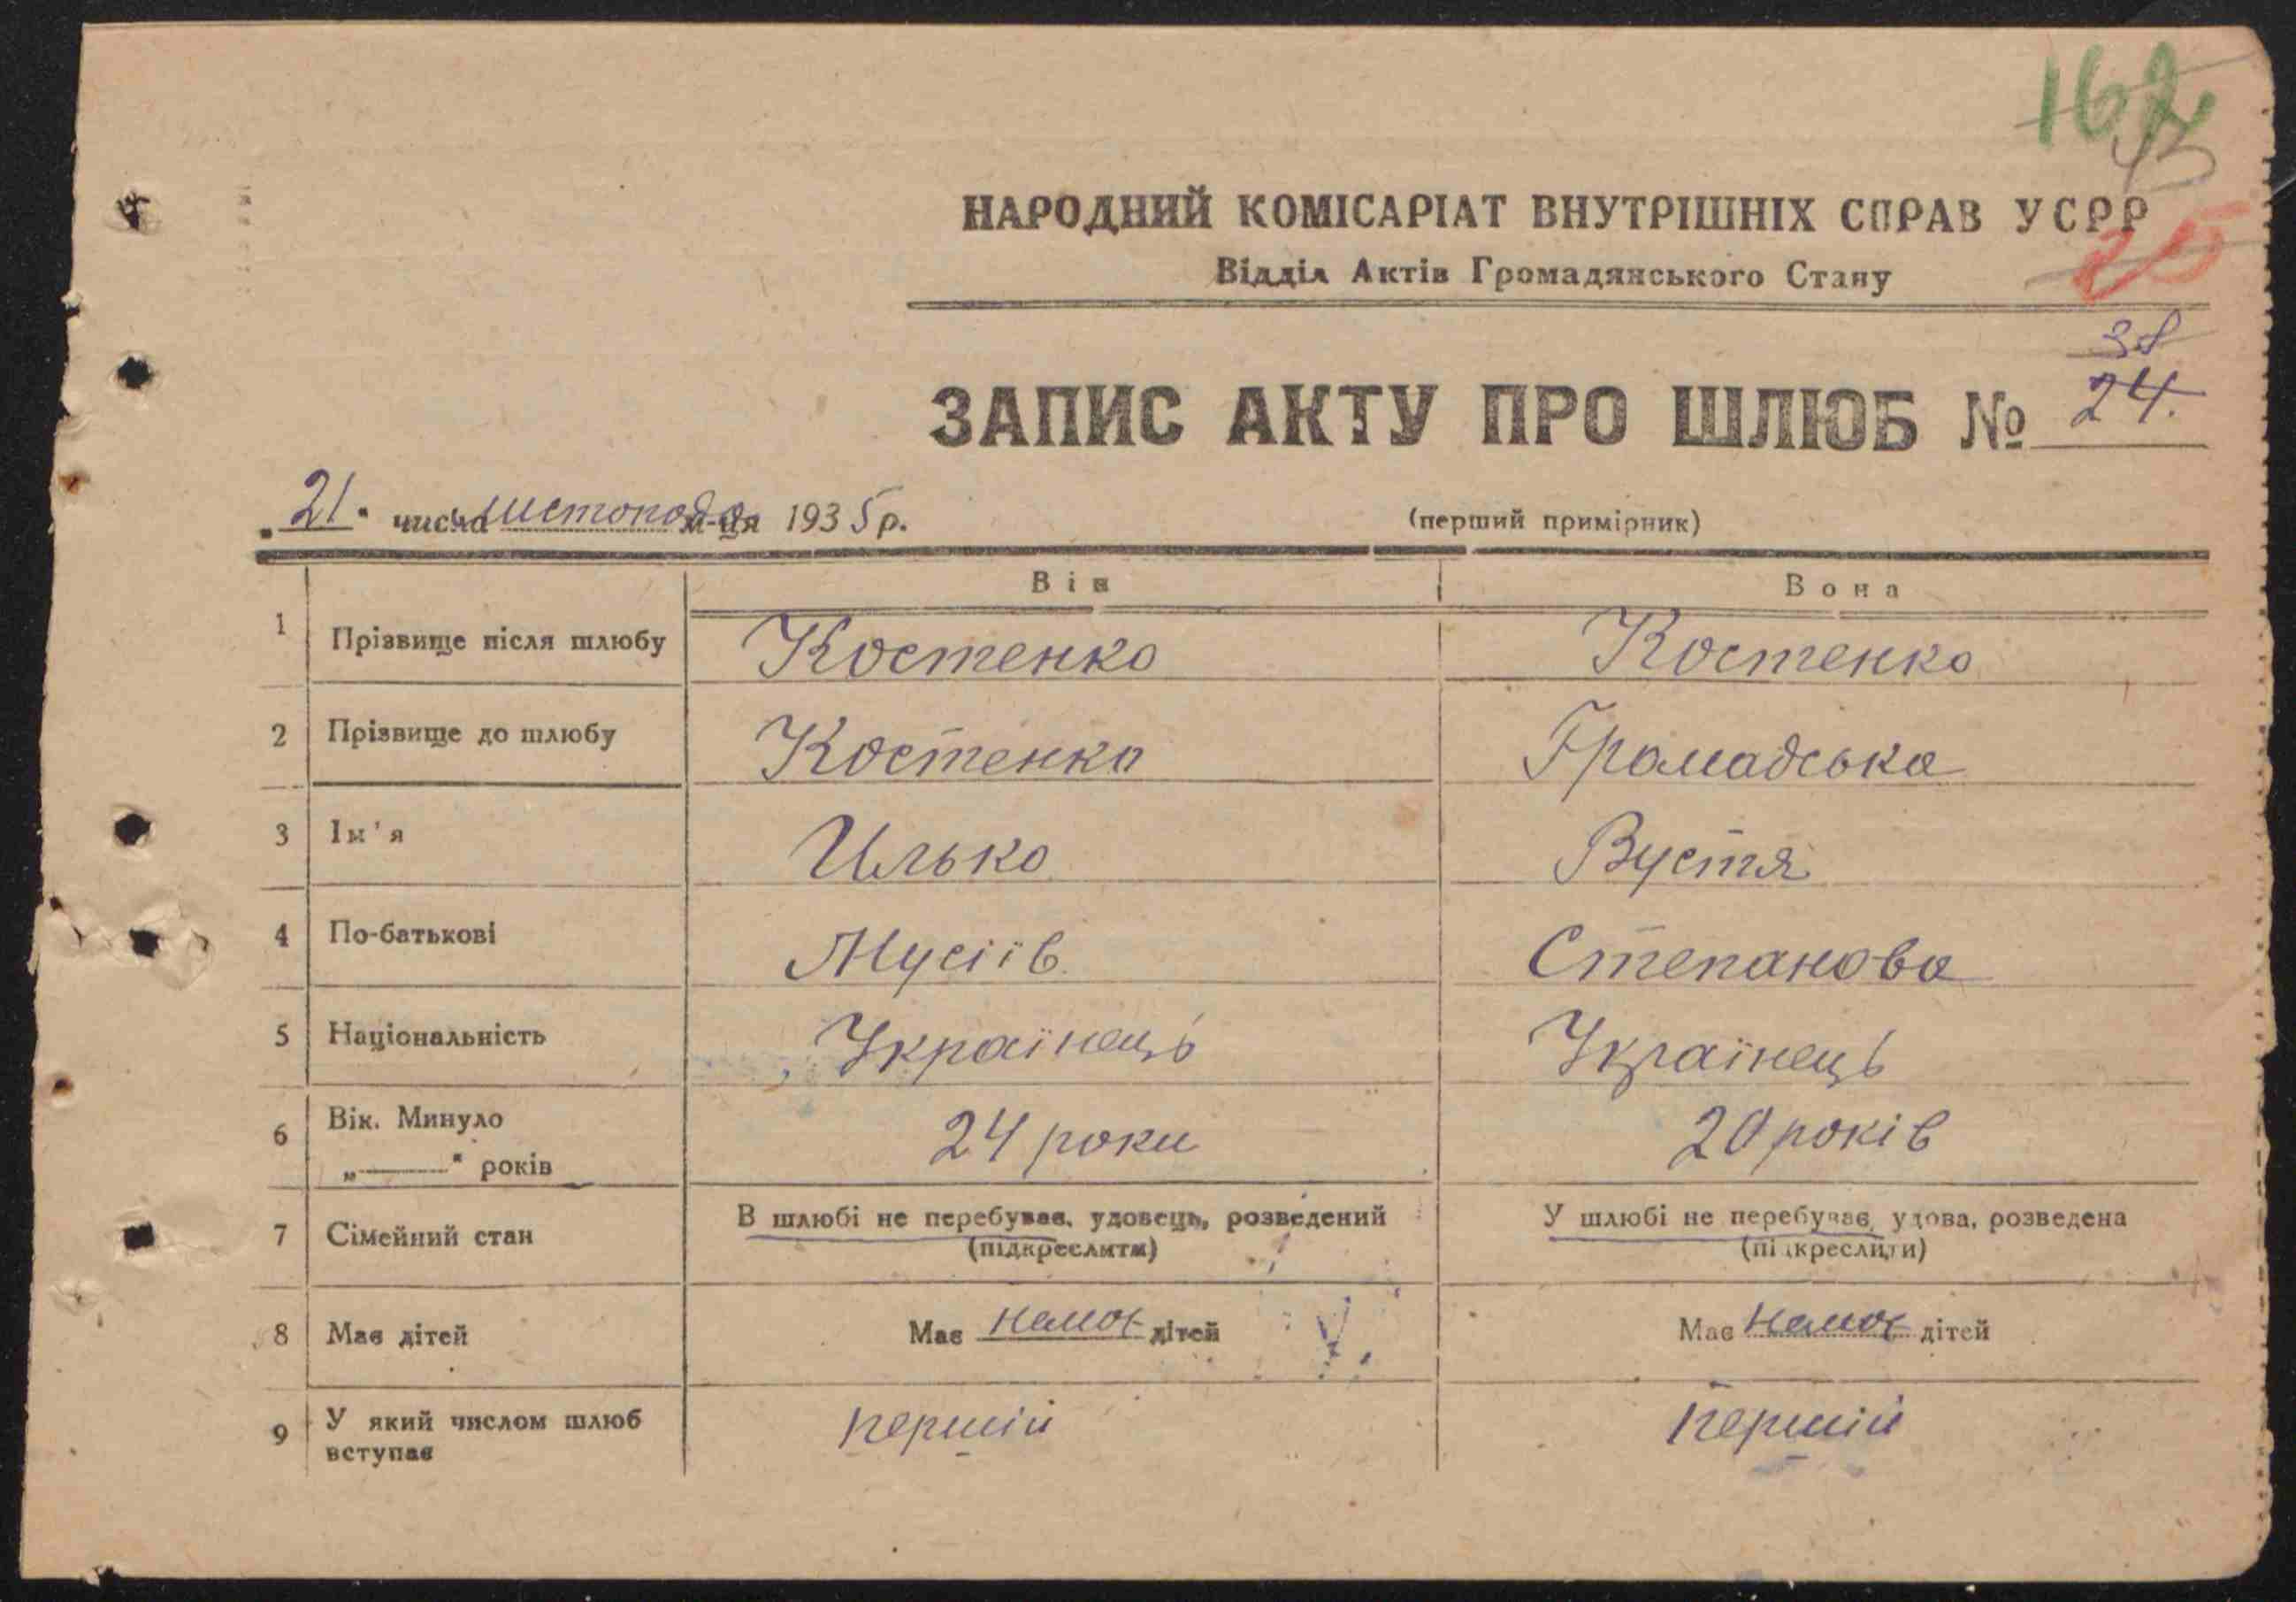 162
43
25
НАРОДНИЙ КОМІСАРІАТ ВНУТРІШНІХ СПРАВ УСРР
Відділ Актів Громадянського Стану
38
ЗАПИС АКТУ ПРО ШЛЮБ № 24.
„21" числа листопада м-ця 1935 р.
(перший примірник)
Він Вона
1 Прізвище після шлюбу Костенко Костенко
2 Прізвище до шлюбу Костенко Громадська
3 Ім'я Илько Вустя
4 По-батькові Мусіїв Степанова
5 Національність Українець Українець
6 Вік. Минуло „——" років 24 роки 20 років
7 Сімейний стан В шлюбі не перебуває, удовець, розведений (підкреслити) У шлюбі не перебуває, удова, розведена (підкреслити)
8 Має дітей Має немає дітей Має немає дітей
9 У який числом шлюб вступає першій першій